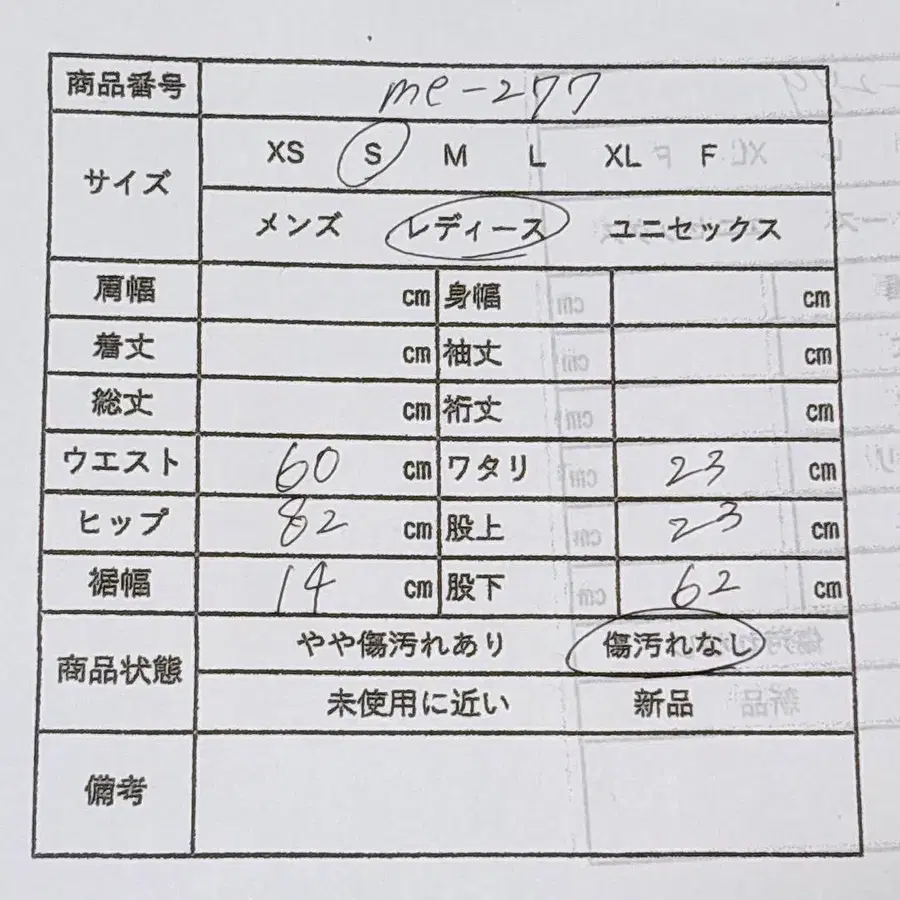 商品番号 me-277
サイズ XS S M L XL F
メンズ レディース ユニセックス
肩幅 cm 身幅 cm
着丈 cm 袖丈 cm
総丈 cm 裄丈 cm
ウエスト 60 cm ワタリ 23 cm
ヒップ 82 cm 股上 23 cm
裾幅 14 cm 股下 62 cm
商品状態 やや傷汚れあり 傷汚れなし
未使用に近い 新品
備考